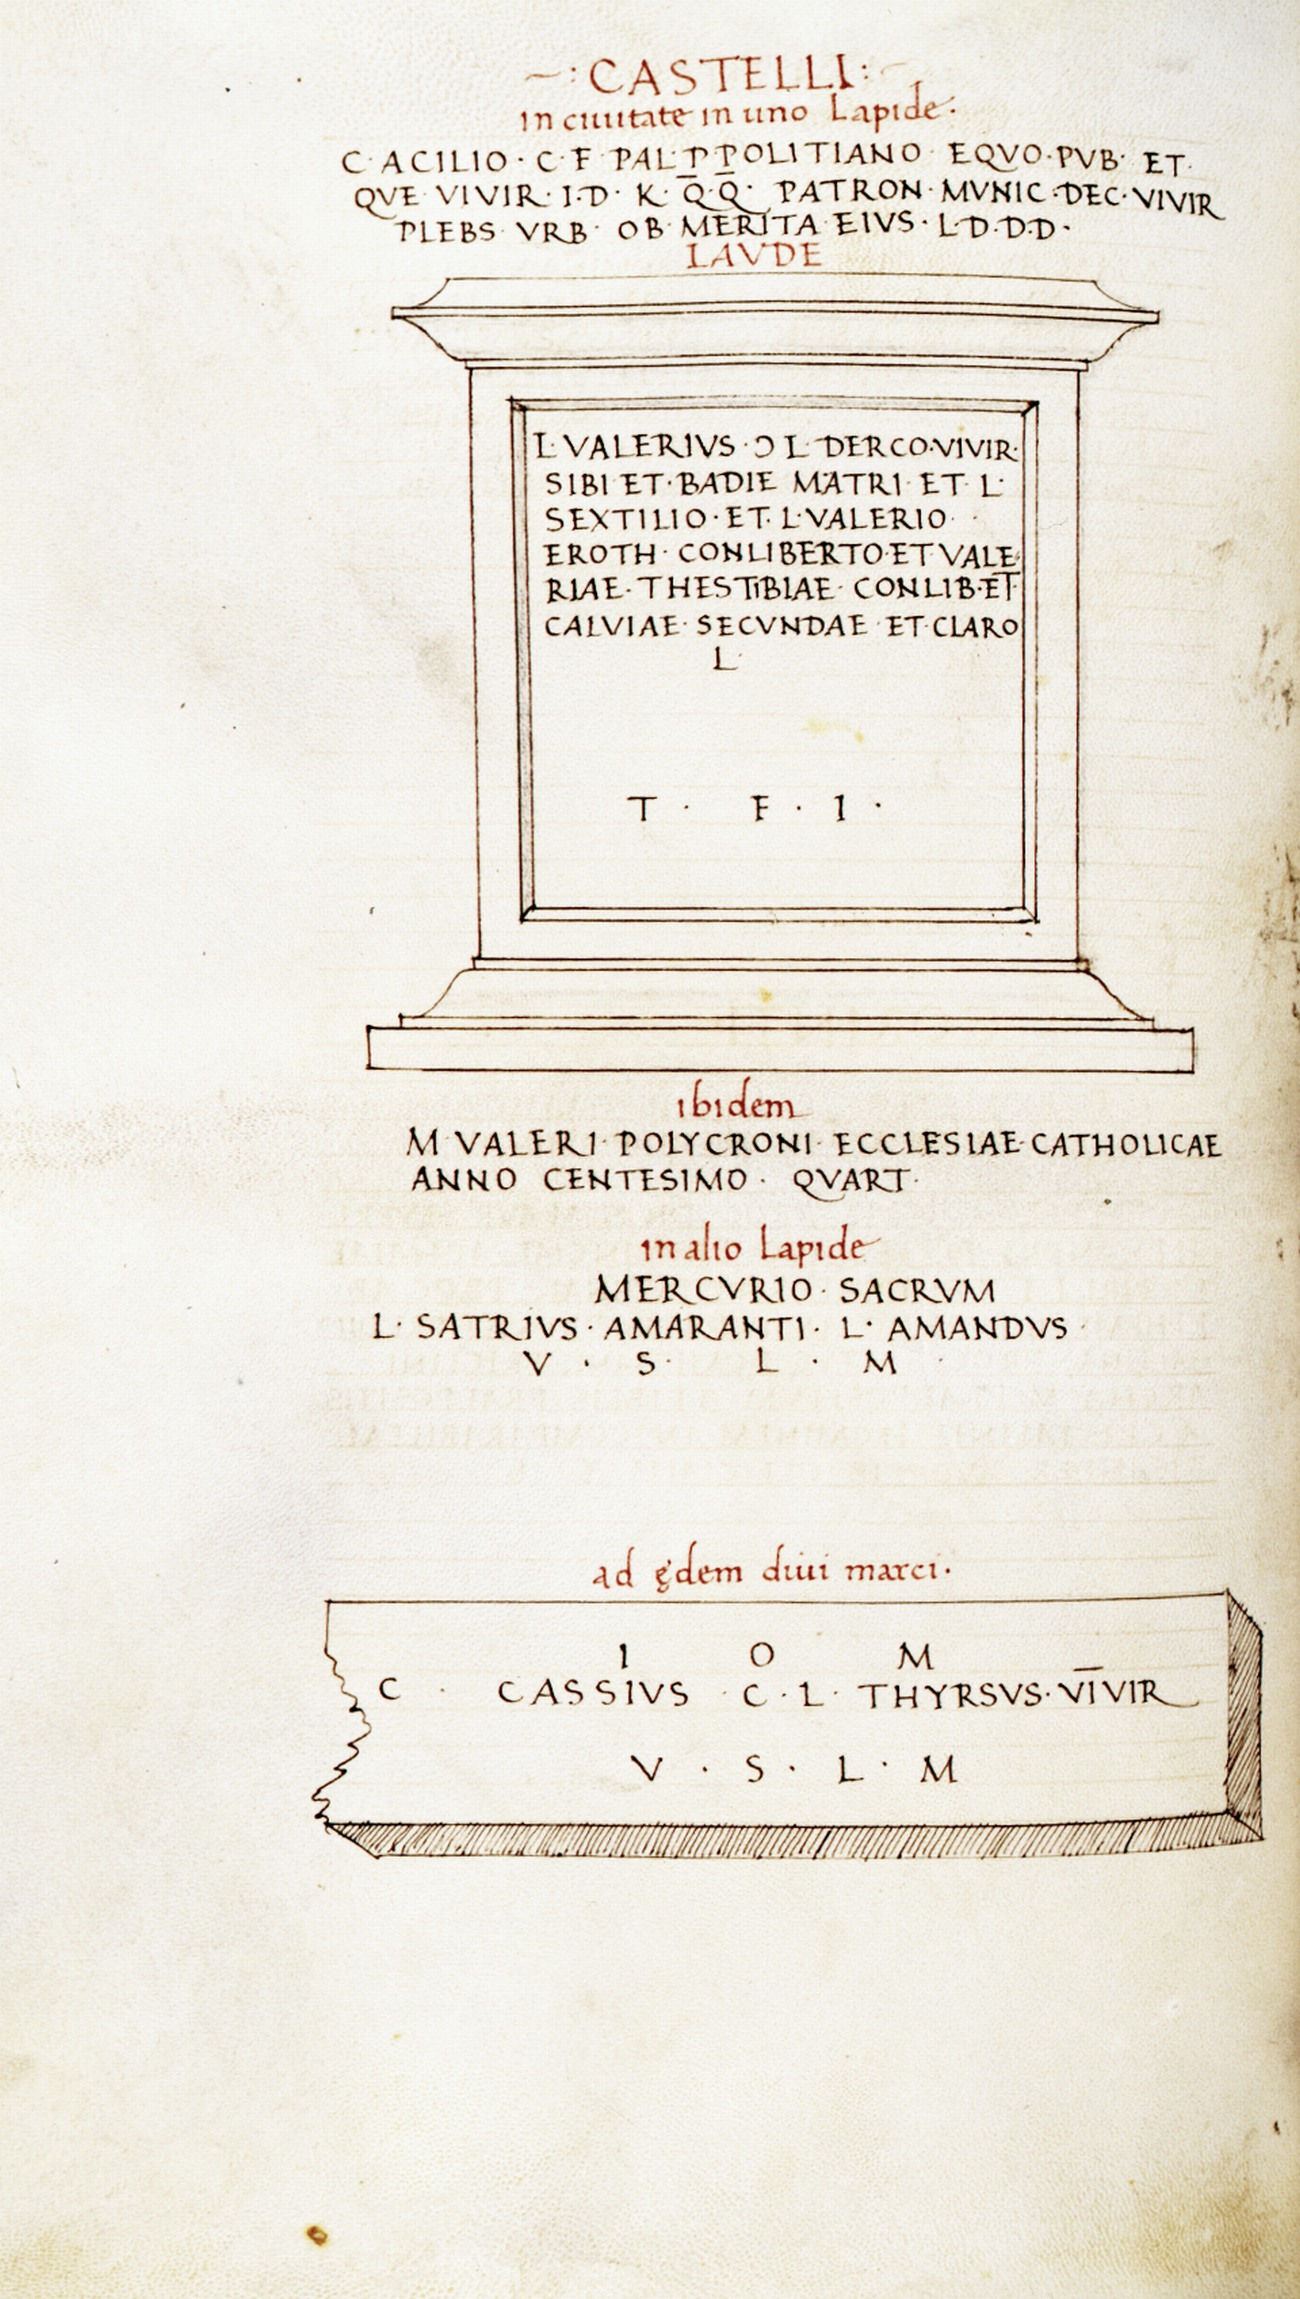 ~:CASTELLI:~
in ciuitate in uno Lapide·
C· ACILIO· C· F· PAL· P̄ P̄OLITIANO· EQVO· PVB· ET·
QVE· VIVIR· I·D· K· Q̄·Q̄· PATRON· MVNIC·DEC·VIVIR
PLEBS· VRB· OB· MERITA· EIVS· L·D·D·D·
LAVDE
L· VALERIVS· Ɔ L· DERCO·VIVIR·
SIBI ET·BADIE MATRI· ET· L·
SEXTILIO· ET· L·VALERIO·
EROTH· CONLIBERTO·ET VALE
RIAE· THESTIBIAE· CONLIB·ET·
CALVIAE· SECVNDAE· ET·CLARO
L·
T · F · I ·
ibidem
M· VALERI· POLYCRONI· ECCLESIAE·CATHOLICAE
ANNO CENTESIMO· QVART·
in alio Lapide
MERCVRIO· SACRVM
L· SATRIVS· AMARANTI· L· AMANDVS·
V · S · L · M ·
ad ędem diui marci·
I O M
C · CASSIVS · C · L · THYRSVS· V̄ĪVIR
V · S · L · M